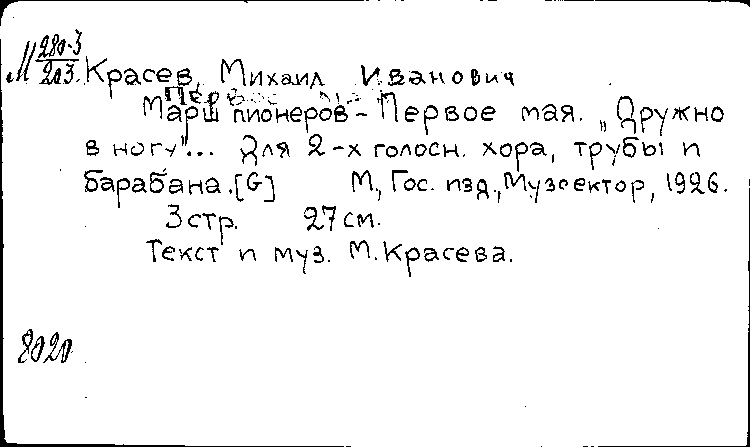 М 280-3
203.
Красев, Михаил Иванович
Первое мая
Марш пионеров - Первое мая. „Дружно
в ногу"... Для 2-х голосн. хора, трубы и
барабана. [G] М., Гос. изд., Музсектор, 1926.
3 стр. 27 см.
Текст и муз. М. Красева.
8020